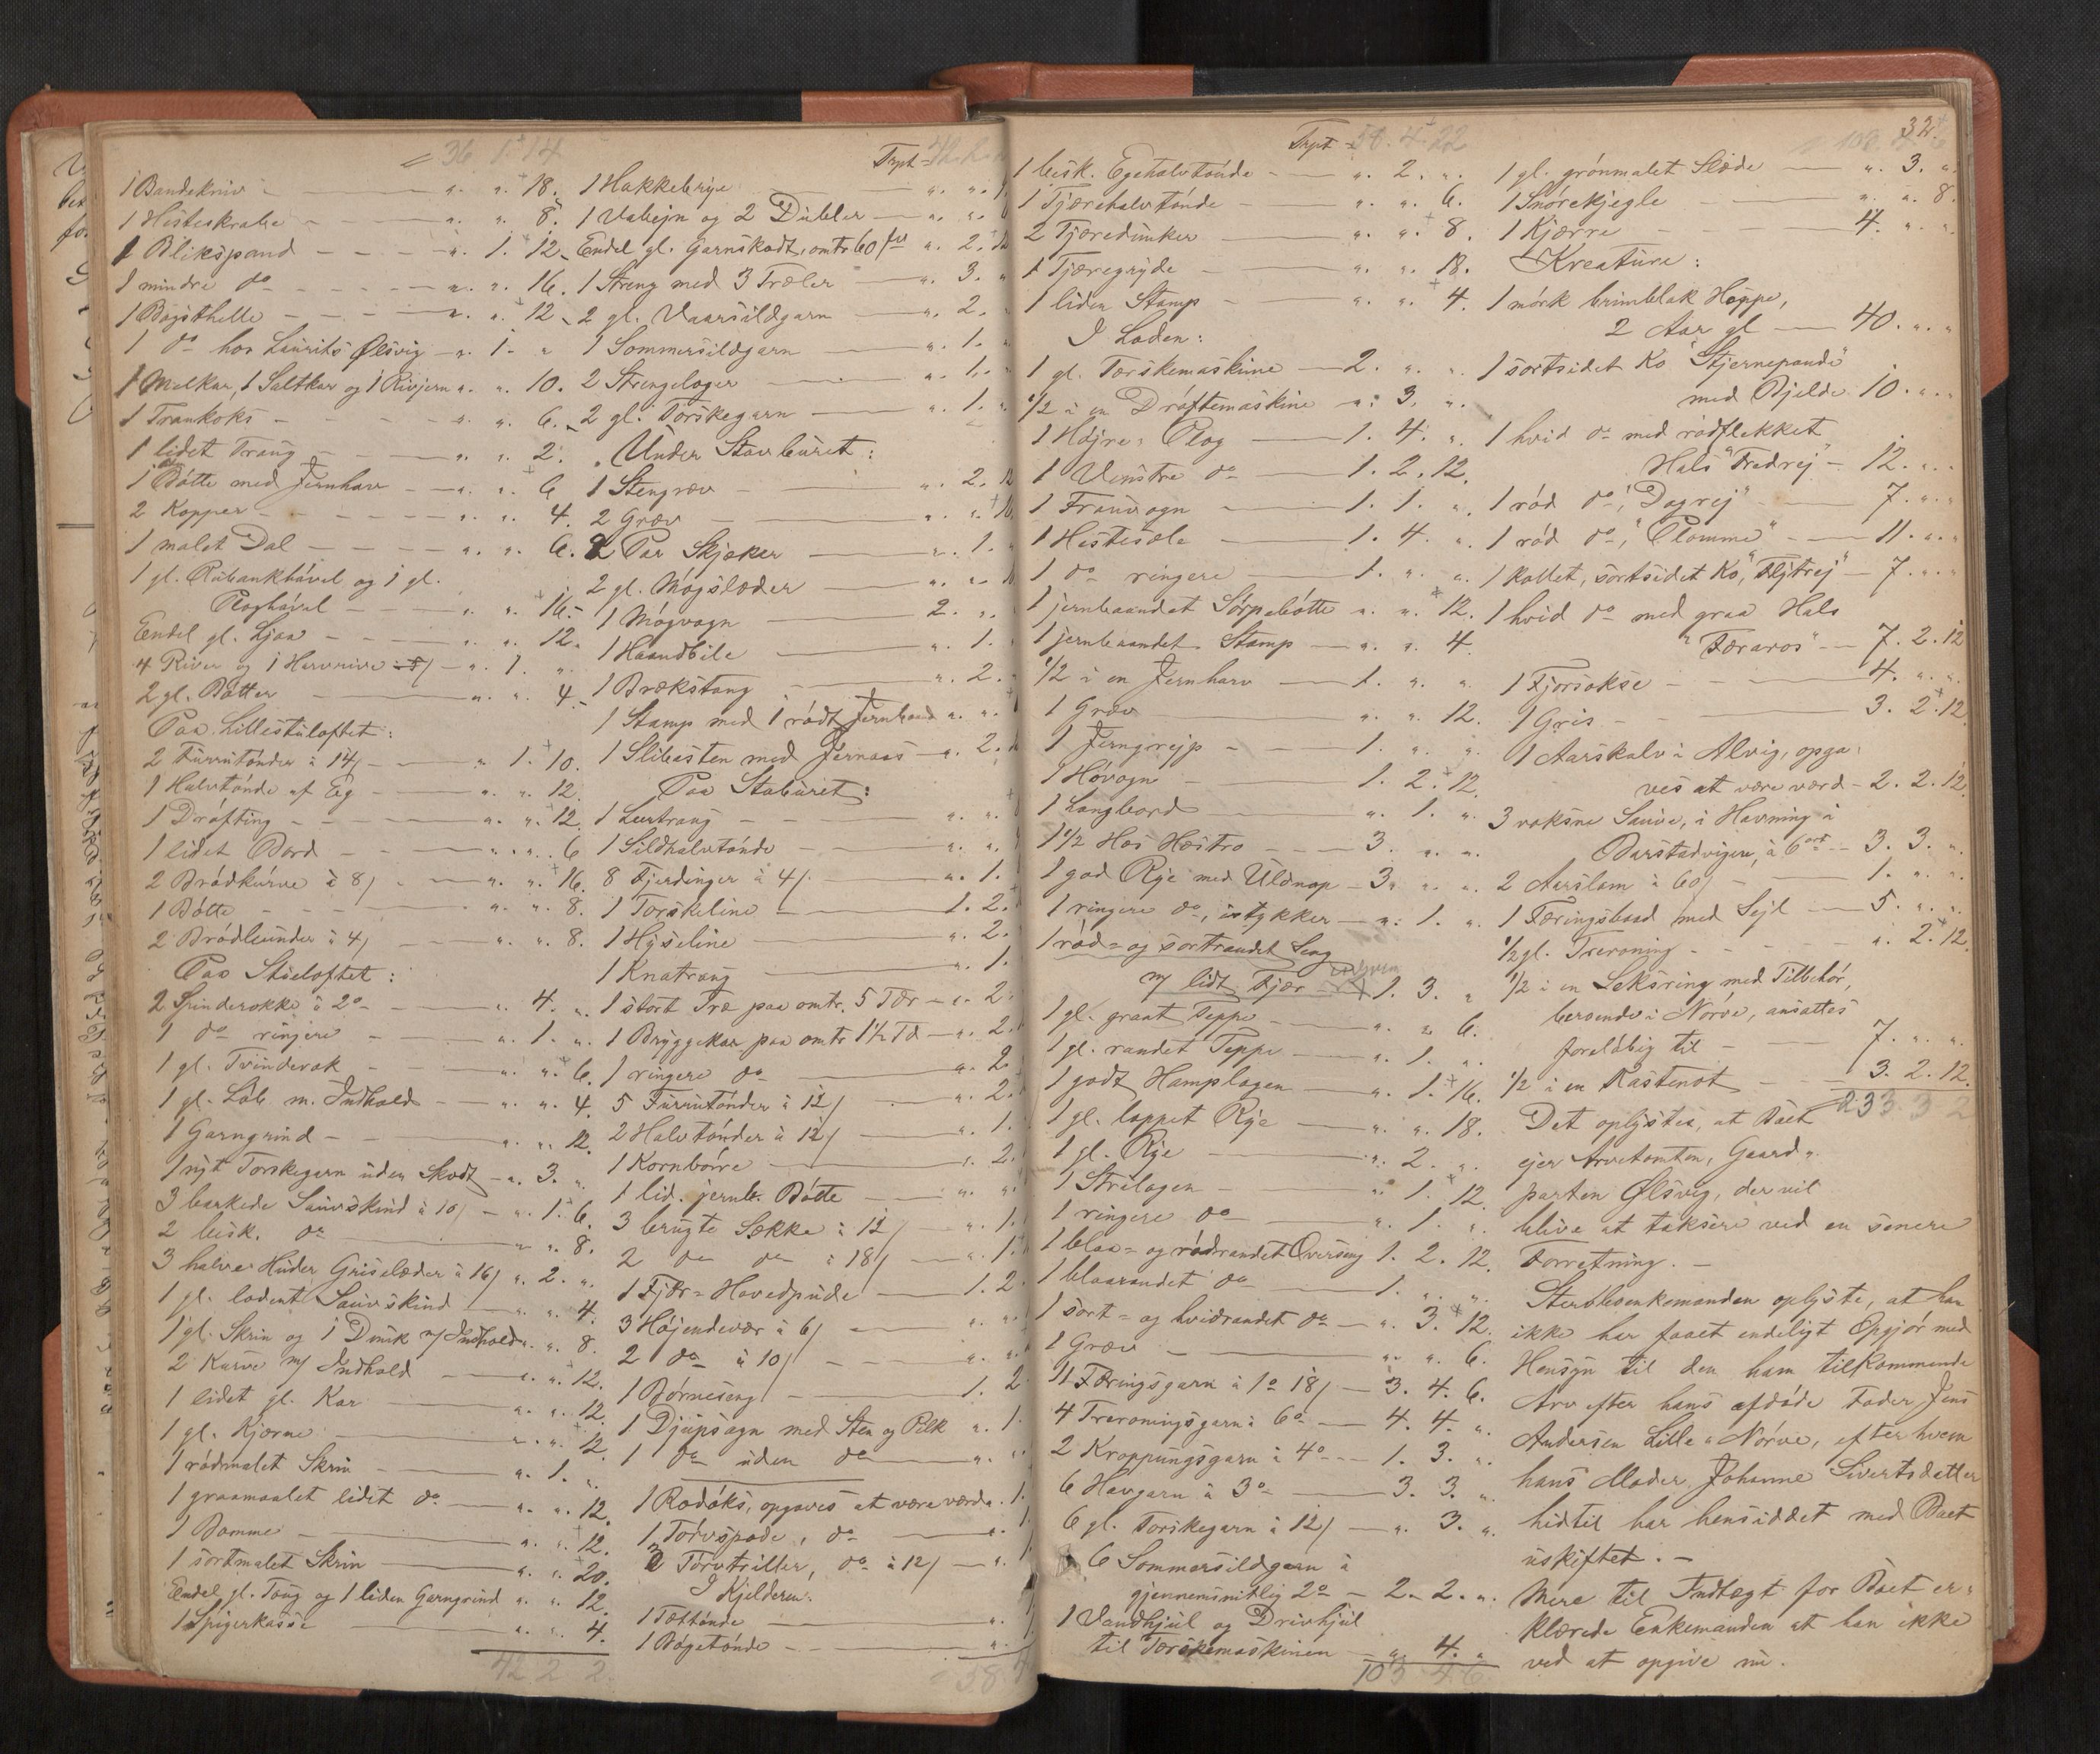 36 1. 14
1 Baandekniv - " " 18.
1 Hesteskrabe - " " 8.
1 Blikspand - " 1. 12.
1 mindre do - " " 16.
1 Bagsthelle - " " 12.
1 do hos Laurits Ølsvig - " 1. "
1 Melkar, 1 Saltkar og 1 Rivjern " " 10.
1 Trankoks - " " 6.
1 lidet Traug - " " 2.
1 Bøtte med Jernhav - " " 6
2 Kopper - " " 4.
1 malet Dal - " " 6.
1 gl. Rubankhøvel og 1 gl.
Ploghøvel - " " 16.
Endel gl. Ljaa - " " 12.
4 River og 1 Harvrive - " 1. "
2 gl. Bøtter - " " 4.
Paa Lillestuloftet:
2 Furutønder à 17/ - " 1. 10.
1 Halvtønde af Eg - " " 12.
1 Drøfting - " " 12.
1 lidet Bord - " " 6
2 Brødkurve à 8/ - " " 16.
1 Bøtte - " " 8.
2 Brødbunder à 4/ - " " 8.
Paa Stueloftet:
2 Spinderokke à 2o - " 4. "
1 do ringere - " 1. "
1 gl. Tvinderok - " " 6.
1 gl. Løb m. Indhold - " " 4.
1 Garngrind - " " 12.
1 nyt Torskegarn uden Skodt - " 3. "
3 barkede Sauvskind à 10/ - " 1. 6.
2 besk. do - " " 8.
3 halve Huder Griselæder à 16/ " 2. "
1 gl. lodent Sauvskind - " " 4.
1 gl. Skrin og 1 Dunk m/ Indhold " " 8.
2 Kurve m/ Indhold - " " 12.
1 lidet gl. Kar - " " 12.
1 gl. Kjærne - " " 12
1 rødmalet Skrin - " 1. "
1 graamaalet lidet do - " " 12.
1 Bomme - " " 12.
1 sortmalet Skrin - " " 20.
Endel gl. Toug og 1 liden Garngrind " " 12.
1 Spigerkasse - " " 4.
42 2 2.
Trpt 42. 2.
1 Hakkebrye
1 Vabejn og 2 Dubler
Endel gl. Garnskodt, omtr 60 " 2.
1 Streng med 3 Træler - " 3.
2 gl. Vaarsildgarn - " 2.
1 Sommersildgarn - " 1.
2 Strengeloger - " 1.
2 gl. Torskegarn - " 1.
Under Stavburet:
1 Stengrev - " 2. 12
2 Græv
2 Par Skjæker - " 1.
2 gl. Møgslæder
1 Møgvogn - 2. "
1 Haandbile - " 1.
1 Brækstang - " 2.
1 Stamp med 1 rødt Jernbaand " "
1 Slibesten med Jernaas - " 2.
Paa Staburet:
1 Lurtraug
1 Sildhalvtønde
8 Fjerdinger à 4/ - " 1.
1 Torskeline - 1. 2.
1 Hyseline - " 2.
1 Knatraug - " 1.
1 stort Træ paa omtr. 5 Tdr - " 2.
1 Bryggekar paa omtr 1½ Td - " 2.
1 ringere do - " 2
5 Furutønder à 12/ - " 2.
2 Halvtønder à 12/ - " 1.
1 Kornbørre - " 2.
1 lid. jernb. Bøtte
3 brugte Sække à 12/ - " 1.
2 do do à 18/ - " 1.
1 Fjær-Hovedpude - 1. 2.
3 Højendevær à 6/
2 do à 10/
1 Børneseng - 1. 2
1 Djupsagn med Sten og Pilk " 1.
1 do uden do
1 Rodøks, opgaves at være værd " 1.
1 Torvspade, do
2 Torvtriller, do à 12/ - " 1.
I Kjelderen.
1 Tættønde
1 Bøgetønde
58.
32.
Trpt 58. 4. 22
1 besk. Egehalvtønde - " 2. "
1 Tjærehalvtønde - " " 6.
2 Tjæredunker " " 8.
1 Tjæregryde - " " 18.
1 liden Stamp - " " 4.
I Laden:
1 gl. Tærskemaskine - 2. " "
1/2 i en Drøftemaskine " 3. "
1 Højre-Plog - 1. 4. "
1 Venstre do - 1. 2. 12.
1 Trauvogn - 1. 1. "
1 Hestesæle - 1. 4. "
1 do ringere - 1. " "
1 jernbaandet Sørpebøtte " " 12.
1 jernbaandet Stamp - " " 4.
1/2 i en Jernharv - 1. " "
1 Græv " " 12.
1 Jerngrejp - 1. " "
1 Høvogn - 1. 2. 12.
1 Langbord " 1. "
1 1/2 Hos Hestro - 3. " "
1 god Rye med Uldnop - 3. " "
1 ringere do, istykker - " 1. "
1 rød= og sortrandet Seng
m/ lidt Fjær 1. 3. "
1 gl. graat Teppe - " " 6.
1 gl. randet Teppe - " 1. "
1 godt Hamplagen - " 1. 16.
1 gl. lappet Rye - " " 18.
1 gl. Rye - " 2. "
1 Strilagen - " 1. 12
1 ringere do - " 1. "
1 blaa= og rødrandet Overseng 1. 2. 12.
1 blaarandet do 1. " "
1 sort= og hvidrandet do - " 3. 12.
1 Græv - " " 6.
11 Færingsgarn à 1o 18/ - 3. 4. 6.
4 Treroningsgarn à 6o - 4. 4. "
2 Kroppungsgarn à 4o - 1. 3. "
6 Havgarn à 3o - 3. 3. "
6 gl. Torskegarn à 12/ - " 3. "
6 Sommersildgarn à
gjennemsnitlig 2o - 2. 2. "
1 Vandhjul og Drivhjul
til Tærskemaskinen - " 4. "
103 4. 6
1 gl. grønmalet Slæde - " 3. "
1 Snørekjegle - " " 8.
1 Kjærre - 4. " "
Kreature:
1 mørk brimblak Hoppe,
2 Aar gl - 40. " "
1 sortsidet Ko "Stjernepande"
med Bjelde 10. " "
1 hvid do med rødflekket
Hals "Fredrej" - 12. " "
1 rød do, "Dagrej" - 7. " "
1 rød do, "Plomme" - 11. " "
1 kollet, sortsidet Ko, "Flytrej" - 7. " "
1 hvid do med graa Hals
"Færaros" - 7. 2. 12
1 Fjorsokse - 4. " "
1 Gris - 3. 2. 12.
1 Aarskalv i Alvig, opga-
ves at være værd - 2. 2. 12.
3 voksne Sauve, i Havning i
Barstadvigen, à 6 ort - 3. 3. "
2 Aarslam à 60/ - 1. " "
1 Færingsbaad med Sejl - 5. " "
1/2 gl. Treroning - " 2. 12.
1/2 i en Seksring med Tilbehør,
beroende i Nørve, ansattes
foreløbig til - 7. " "
1/2 i en Kastenot - 3. 2. 12.
233. 3 2
Det oplystes, at Boet
ejer Arvetomten, Gaard-
parten Ølsvig, der vil
blive at taksere ved en senere
Forretning. -
Sterbboenkemanden oplyste, at han
ikke har faaet endeligt Opgjør med
Hensyn til den ham tilkommende
Arv efter hans afdøde Fader Jens
Andersen Lille-Nørve, efter hvem
hans Moder Johanne Sivertsdatter
hidtil har hensiddet med Boet
uskiftet. -
Mere til Indtægt for Boet er-
klærede Enkemanden at han ikke
ved at opgive nu.